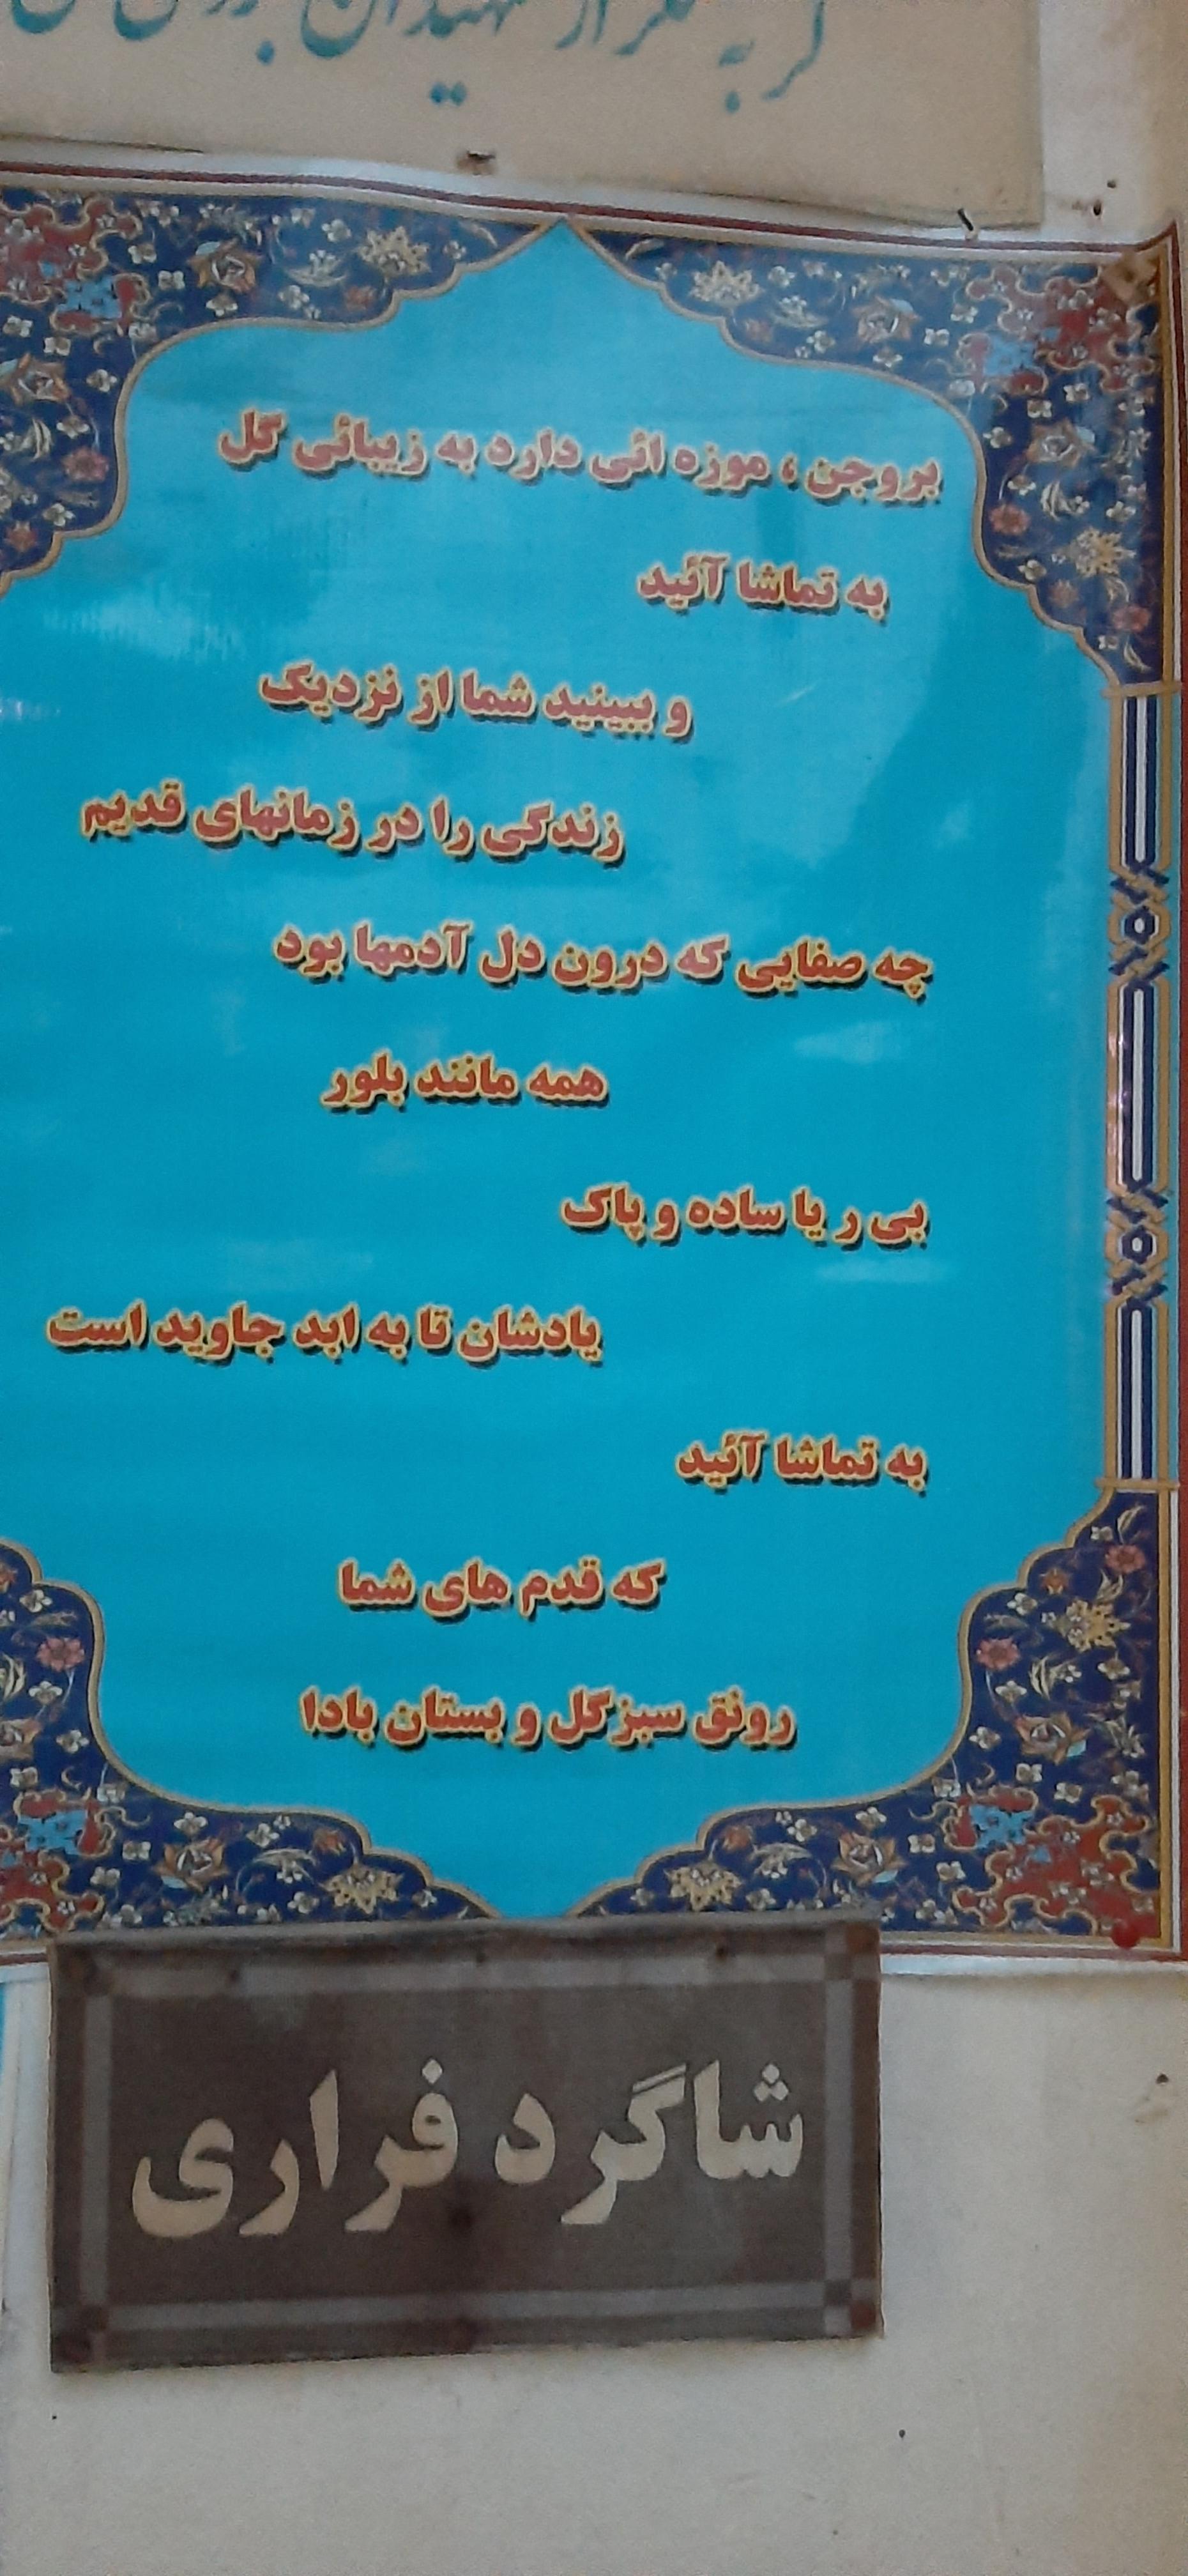 گر به
بروجن ، موزه ائی دارد به زیبائی گل
به تماشا آئید
و ببینید شما از نزدیک
زندگی را در زمانهای قدیم
چه صفایی که درون دل آدمها بود
همه مانند بلور
بی ر یا ساده و پاک
یادشان تا به ابد جاوید است
به تماشا آئید
که قدم های شما
رونق سبزگل و بستان بادا
شاگرد فراری